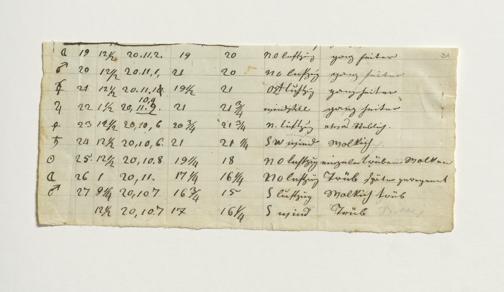 ☾ 19 12½ 20.11.2. 19 20 NO luftzüg ganz heiter
♂ 20 12½ 20.11.1, 21 20 No luftzüg ganz heiter
21 12½ 20.11. 19½ 21 Ost luftzüg ganz heiter
22 1½ 20, 21 21¾ windstill ganz heiter
23 12½ 20,10,6 20¾ 21¾ N. luftzüg
♄ 24 12½ 20,10,6. 21 21¼ SW wind Wolkich
☉ 25 12½ 20,10.8 19¼ 18 NO luftzüg einzelne trüben Wolken
☾ 26 1 20,11. 17¼ 16¼ NO luftzüg Trüb später geregnet
♂ 27 9¼ 20,10.7 16¾ 15 S luftzüg Wolkich trüb
12½ 20,10.7 17 16¼ S wind Trüb